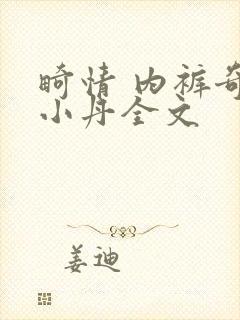 畸情 内裤奇
小丹全文
姜迪